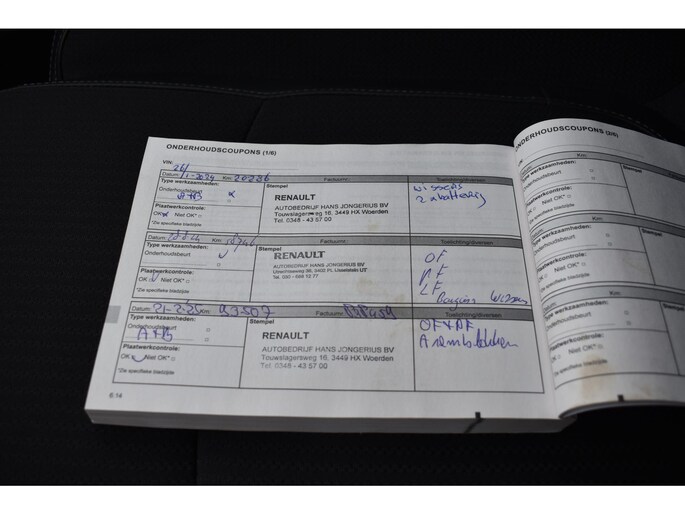 ONDERHOUDSCOUPONS (1/6)
VIN:
Datum: 26/1-2024 Km: 20236 Factuurnr.: Toelichting/diversen
Type werkzaamheden:
Onderhoudsbeurt
A+B
Plaatwerkcontrole:
OK Niet OK*
*Zie specifieke bladzijde
Stempel
RENAULT
AUTOBEDRIJF HANS JONGERIUS BV
Touwslagersweg 16, 3449 HX Woerden
Tel. 0348 - 43 57 00
wissers
Datum: Km: Factuurnr.: Toelichting/diversen
Type werkzaamheden:
Onderhoudsbeurt
Plaatwerkcontrole:
OK Niet OK*
*Zie specifieke bladzijde
Stempel
RENAULT
AUTOBEDRIJF HANS JONGERIUS BV
OF
LF
Wissers
Datum: 21-2-25 Km: 93307 Factuurnr.: Toelichting/diversen
Type werkzaamheden:
Onderhoudsbeurt
A+B
Plaatwerkcontrole:
OK Niet OK*
*Zie specifieke bladzijde
Stempel
RENAULT
AUTOBEDRIJF HANS JONGERIUS BV
Touwslagersweg 16, 3449 HX Woerden
Tel. 0348 - 43 57 00
6.14
ONDERHOUDSCOUPONS (2/6)
VIN:
Datum: Km:
Type werkzaamheden:
Onderhoudsbeurt
Plaatwerkcontrole:
OK Niet OK*
*Zie specifieke bladzijde
Datum: Km:
Type werkzaamheden:
Onderhoudsbeurt
Plaatwerkcontrole:
OK Niet OK*
*Zie specifieke bladzijde
Datum: Km:
Type werkzaamheden:
Onderhoudsbeurt
Plaatwerkcontrole:
OK Niet OK*
*Zie specifieke bladzijde